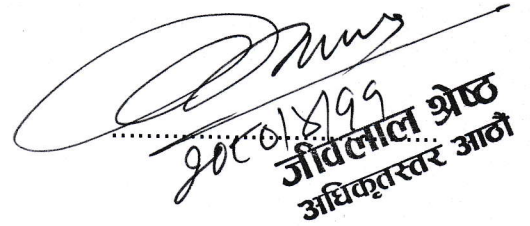 २०८०/४/११
जीवलाल श्रेष्ठ
अधिकृतस्तर आठौं